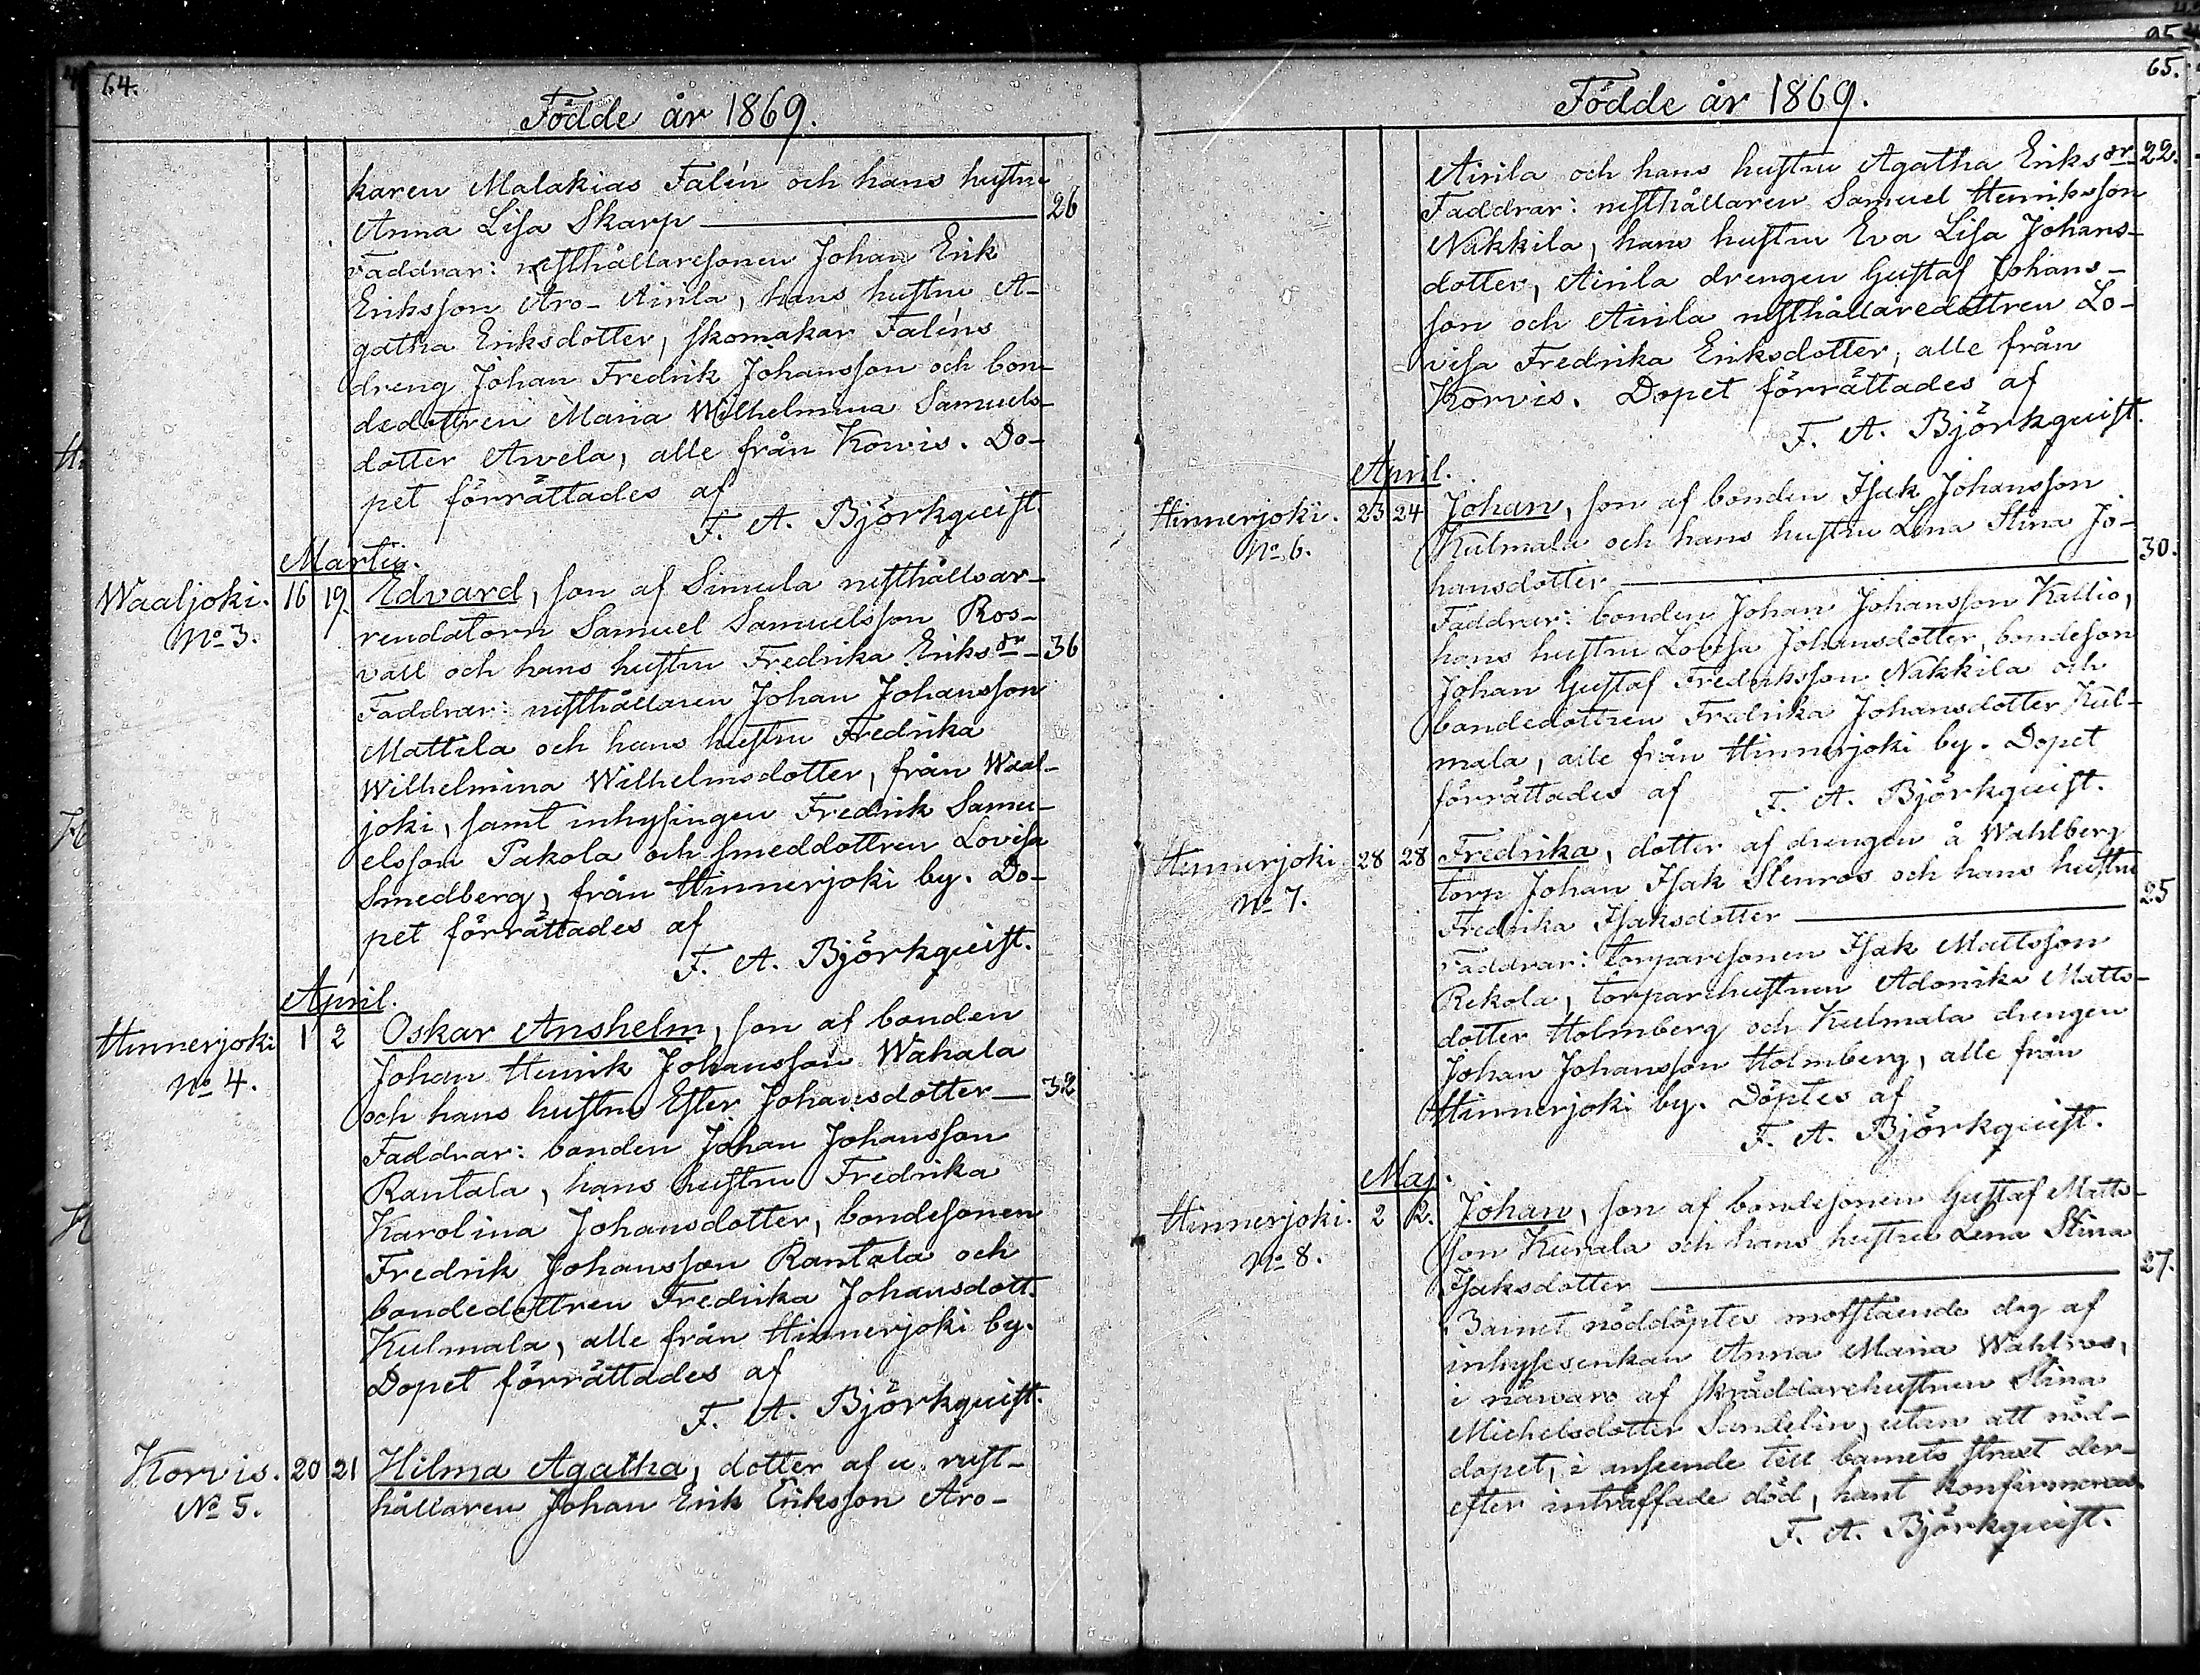 64.
Födde år 1869.
karen Malakias Falén och hans hustru
Anna Lisa Skarp 26
Faddrar: rusthållaresonen Johan Erik
Eriksson Aro-Airila, hans hustru A-
gatha Eriksdotter, skomakar Faléns
dreng Johan Fredrik Johansson och bon-
dedottren Maria Wilhelmina Samuels-
dotter Arvela, alle från Korvis. Do-
pet förrättades af
F. A. Björkqvist.
Martii.
Waaljoki. 16 19. Edvard, son af Simula rusthålls ar-
No 3. rendatorn Samuel Samuelsson Ros-
vall och hans hustru Fredrika Eriksdr 36
Faddrar: rusthållaren Johan Johansson
Mattila och hans hustru Fredrika
Wilhelmina Wilhelmsdotter, från Waal-
joki, samt inhysingen Fredrik Samu-
elsson Pakola och smeddottren Lovisa
Smedberg, från Hinnerjoki by. Do-
pet förrättades af
F. A. Björkqvist.
April.
Hinnerjoki 1 2 Oskar Anshelm, son af bonden
No 4. Johan Henrik Johansson Wahala
och hans hustru Ester Johansdotter 32
Faddrar: bonden Johan Johansson
Rantala, hans hustru Fredrika
Karolina Johansdotter, bondesonen
Fredrik Johansson Rantala och
bondedottren Fredrika Johansdott.
Kulmala, alle från Hinnerjoki by.
Dopet förrättades af
F. A. Björkqvist.
Korvis. 20 21 Hilma Agatha, dotter af u. rust-
No 5. hållaren Johan Erik Eriksson Aro-
65.
Födde år 1869.
Airila och hans hustru Agatha Eriksdr 22.
Faddrar: rusthållaren Samuel Henriksson
Nakkila, hans hustru Eva Lisa Johans-
dotter, Airila drengen Gustaf Johans-
son och Airila rusthållaredottren Lo-
visa Fredrika Eriksdotter, alle från
Korvis. Dopet förrättades af
F. A. Björkqvist.
April.
Hinnerjoki. 23 24 Johan, son af bonden Isak Johansson
No 6. Kulmala och hans hustru Lena Stina Jo-
hansdotter 30.
Faddrar: bonden Johan Johansson Kallio,
hans hustru Lovisa Johansdotter, bondeson
Johan Gustaf Fredriksson Nakkila och
bondedottren Fredrika Johansdotter Kul-
mala, alle från Hinnerjoki by. Dopet
förrättades af F. A. Björkqvist.
Hinnerjoki 28 28 Fredrika, dotter af drengen å Wahlberg
No 7. torp Johan Isak Stenros och hans hustru
Fredrika Isaksdotter 25
Faddrar: torparesonen Isak Mattsson
Rekola, torparehustrun Adonika Matts-
dotter Holmberg och Kulmala drengen
Johan Johansson Holmberg, alle från
Hinnerjoki by. Döptes af
F. A. Björkqvist.
Maj.
Hinnerjoki. 2 2. Johan, son af bondesonen Gustaf Matts-
No 8. son Kurala och hans hustru Lena Stina
Isaksdotter 27.
Barnet nöddöptes motstående dag af
inhysesenkan Anna Maria Wahlros,
i närvaro af skräddarehustrun Stina
Michelsdotter Sandelin, utan att nöd-
dopet, i anseende till barnets straxt der-
efter inträffade död, hant konfirmeras.
F. A. Björkqvist.